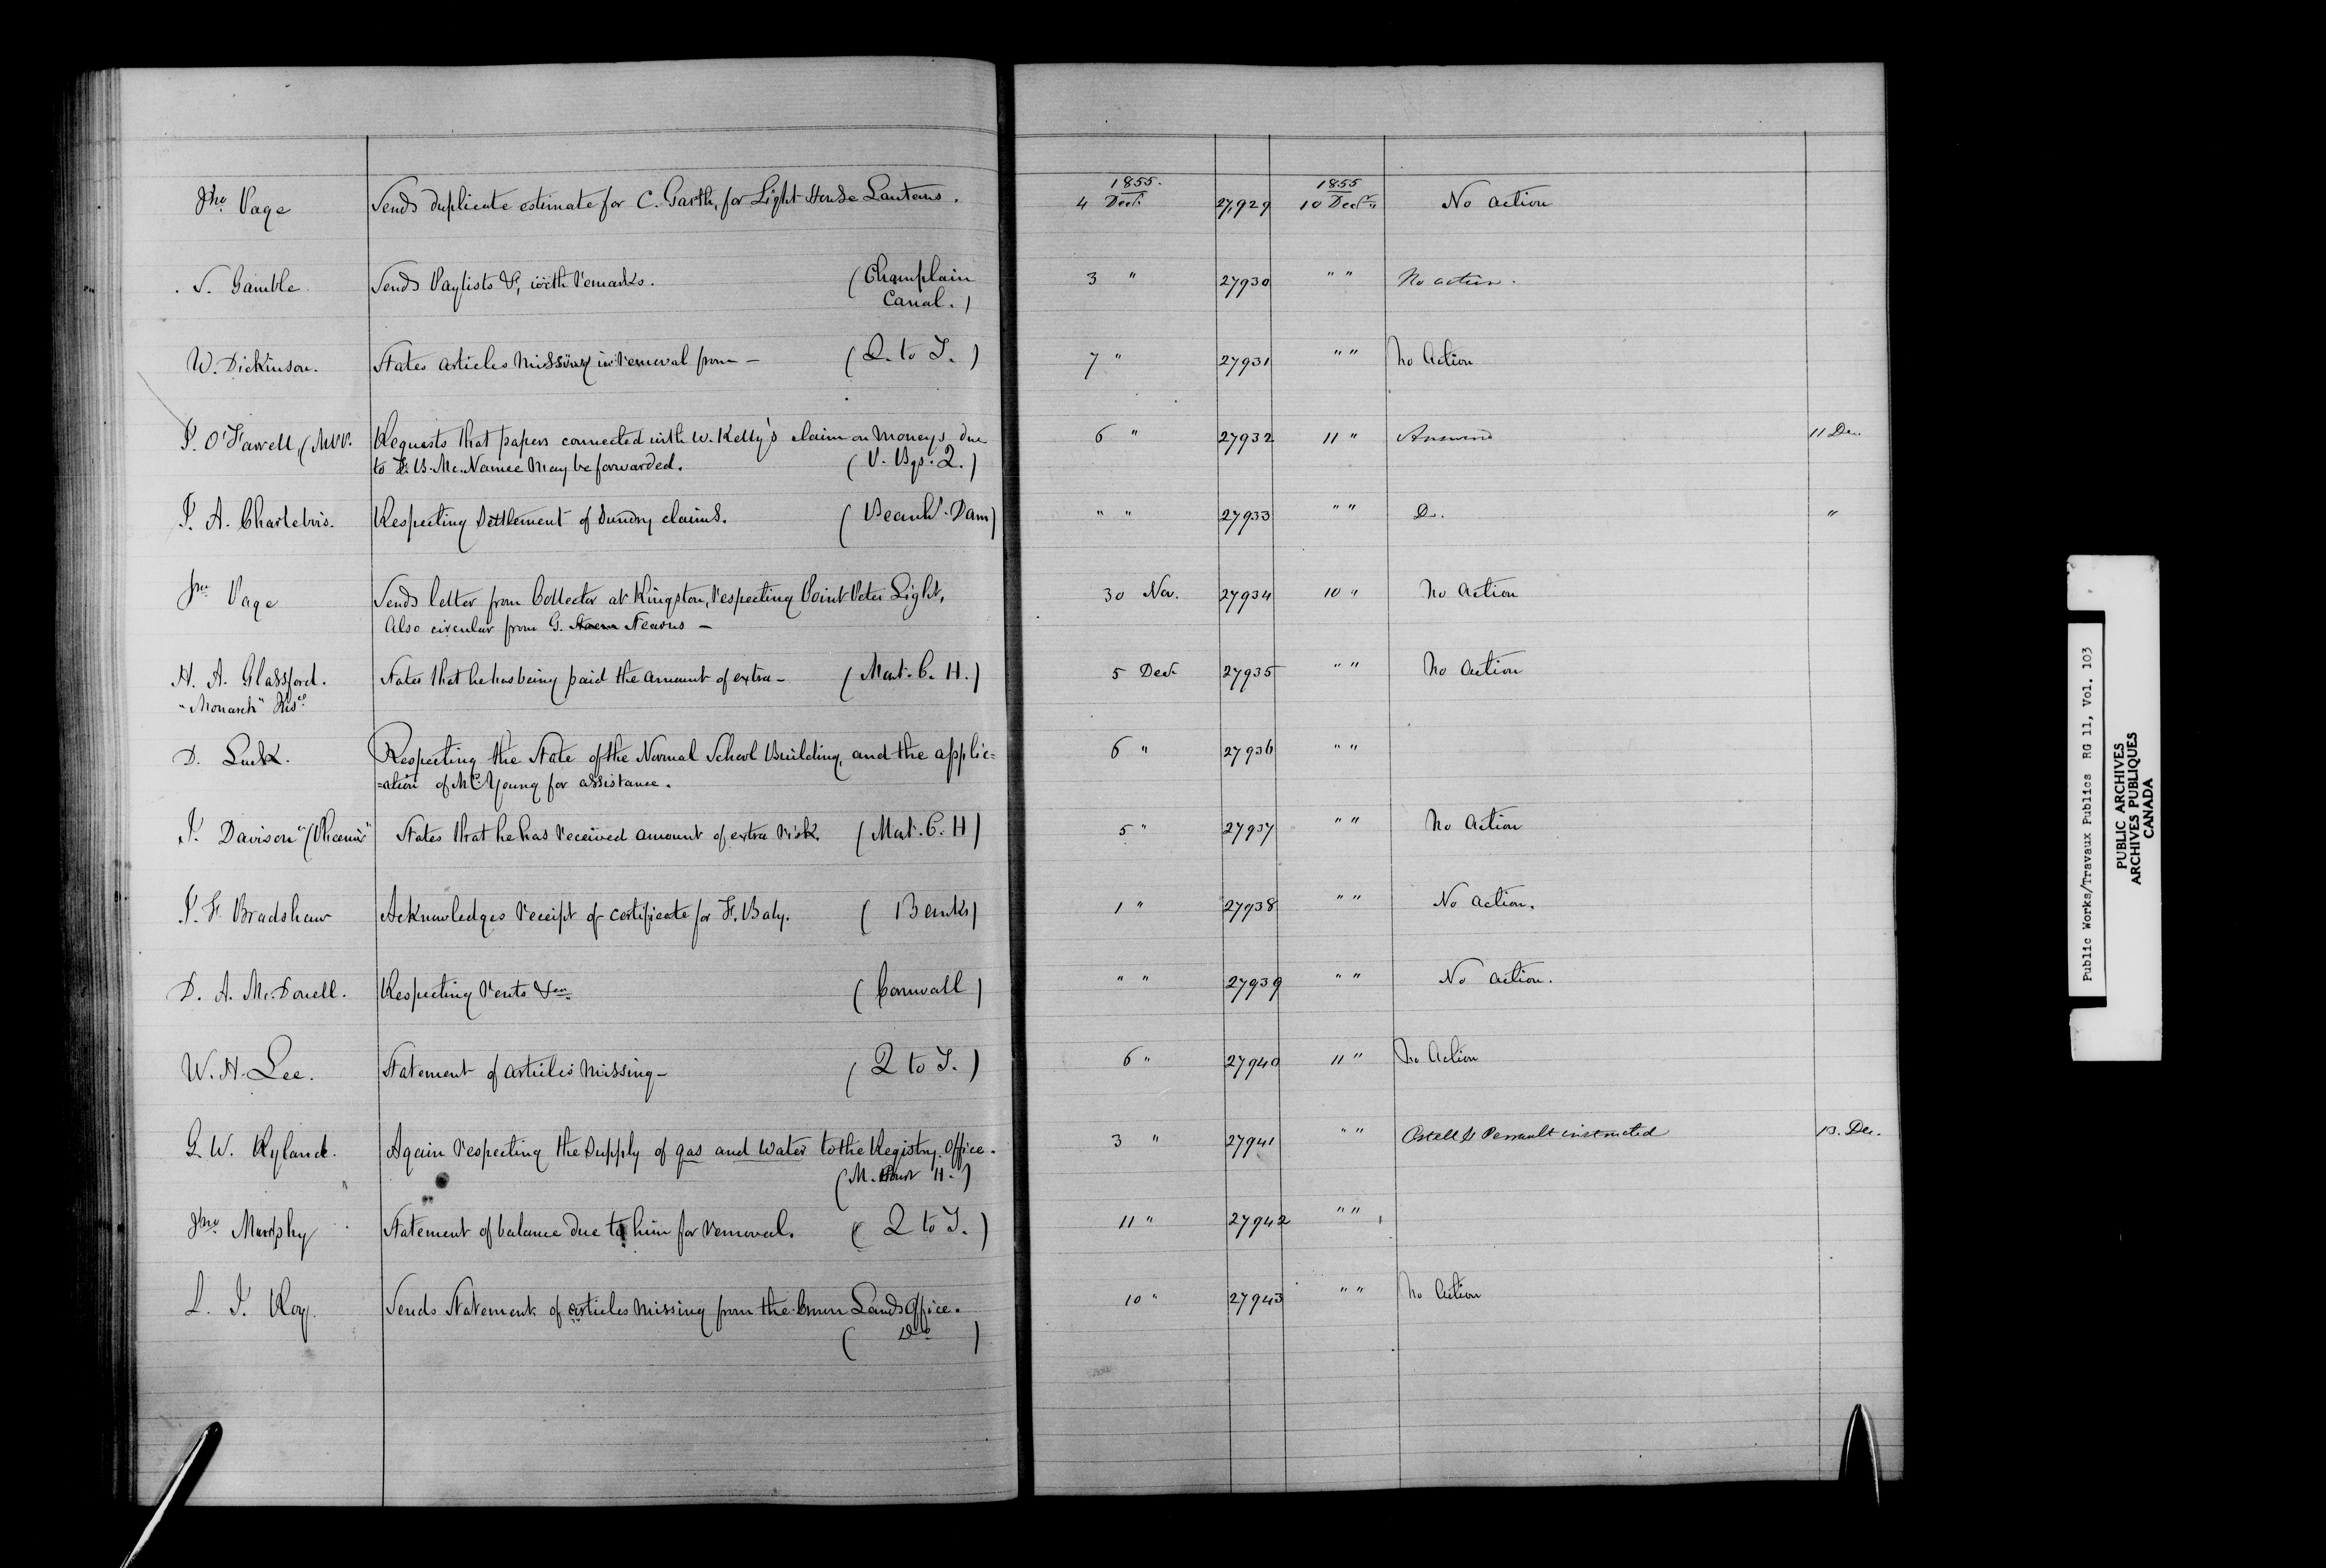 1855. 1855
Jno Page Sends duplicate estimate for C. Garth, for Light House Lanterns. 4 Decr. 27,929 10 Decr. " No action
S. Gamble. Sends Paylists &c, with remarks. (Champlain 3 " 27930 " " No action.
Canal.)
W. Dickinson. States articles missing in removal from — (Q. to T.) 7 " 27931 " " No Action
J. O'Farrell, (MPP. Requests that papers connected with W. Kelly's claim on moneys due 6 " 27932 11 " Answered 11 Dec.
to F. B. McNamee may be forwarded. (P. Bgs. Q.)
J. A. Charlebois. Respecting Settlement of Sundry claims. (Beauhs. Dam) " " 27933 " " Do. "
Jno Page Sends letter from Collector at Kingston, respecting Point Peter Light, 30 Nov. 27934 10 " No Action
Also circular from G. Stearns —
H. A. Glassford. States that he has being paid the amount of extra — (Mont. C. H.) 5 Decr. 27935 " " No Action
"Monarch"
D. Luck. Respecting the State of the Normal School Building, and the applic= 6 " 27936 " "
=ation of Mr. Young for assistance.
J. Davison "(Phoenix" States that he has received amount of extra risk. (Mont. C. H) 5 " 27937 " " No Action
J. F. Bradshaw Acknowledges receipt of certificate for F. Baby. (Banks) 1 " 27938 " " No action.
D. A. McDonell. Respecting rents &ca. (Cornwall) " " 27939 " " No action.
W. H. Lee. Statement of articles missing — (Q to T.) 6 " 27940 11 " No Action
G. W. Ryland. Again respecting the supply of gas and water to the Registry Office. 3 " 27941 " " Ostell & Perrault instructed 13. Dec.
(M. Court H.)
Jno Murphy Statement of balance due to him for removal. (Q to T.) 11 " 27942 " "
L. J. Roy. Sends Statement of articles missing from the Crown Lands Office. 10 " 27943 " " No Action
(Do)
Public Works/Travaux Publics RG 11, Vol. 103
PUBLIC ARCHIVES
ARCHIVES PUBLIQUES
CANADA